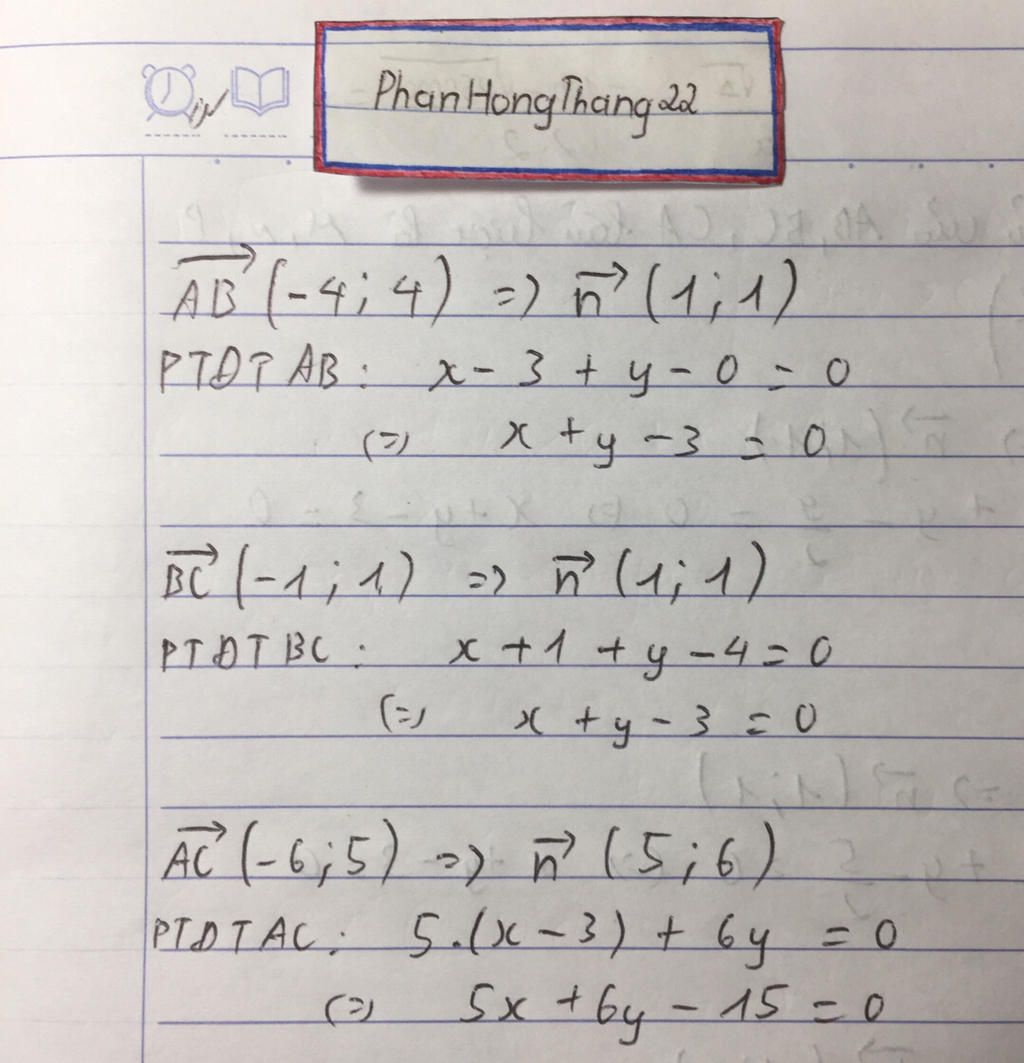 PhanHongThang22
AB→ (-4; 4) => n→ (1; 1)
PTDT AB: x - 3 + y - 0 = 0
(=) x + y - 3 = 0
BC→ (-1; 1) => n→ (1; 1)
PTDT BC: x + 1 + y - 4 = 0
(=) x + y - 3 = 0
AC→ (-6; 5) => n→ (5; 6)
PTDT AC: 5.(x - 3) + 6y = 0
(=) 5x + 6y - 15 = 0